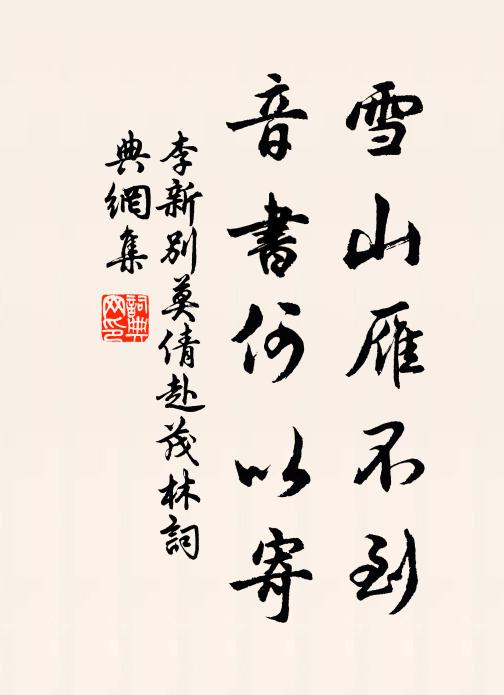 雪山雁不到
音書何以寄
李新別莫倩赴茂林詞
典網集
詞典
网印